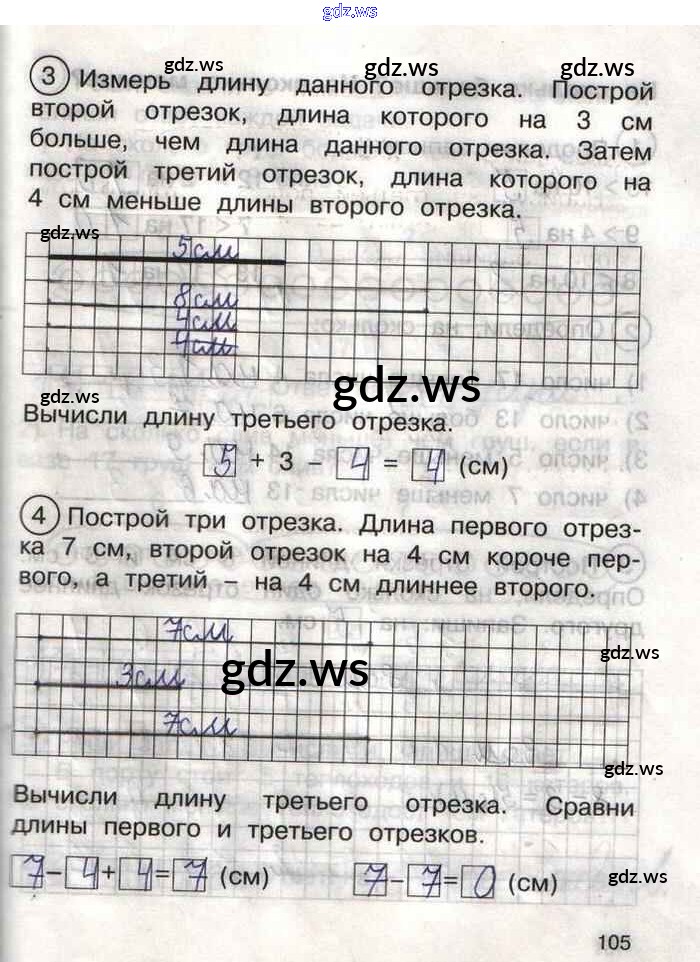 gdz.ws
gdz.ws gdz.ws gdz.ws
3 Измерь длину данного отрезка. Построй
второй отрезок, длина которого на 3 см
больше, чем длина данного отрезка. Затем
построй третий отрезок, длина которого на
4 см меньше длины второго отрезка.
gdz.ws
5см
8см
4см
4см
gdz.ws
gdz.ws
Вычисли длину третьего отрезка.
5 + 3 – 4 = 4 (см)
4 Построй три отрезка. Длина первого отрез-
ка 7 см, второй отрезок на 4 см короче пер-
вого, а третий – на 4 см длиннее второго.
7см
gdz.ws
3см
gdz.ws
7см
gdz.ws
Вычисли длину третьего отрезка. Сравни
длины первого и третьего отрезков.
7–4+4=7 (см) 7–7=0 (см)
gdz.ws
gdz.ws
105